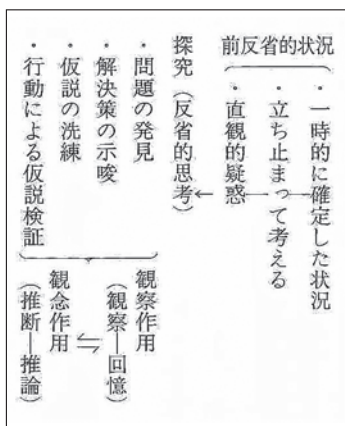 前反省的状況
・一時的に確定した状況
・立ち止まって考える
・直観的疑惑
探究（反省的思考）
・問題の発見
・解決策の示唆
・仮説の洗練
・行動による仮説検証
観察作用
（観察―回憶）
観念作用
（推断―推論）